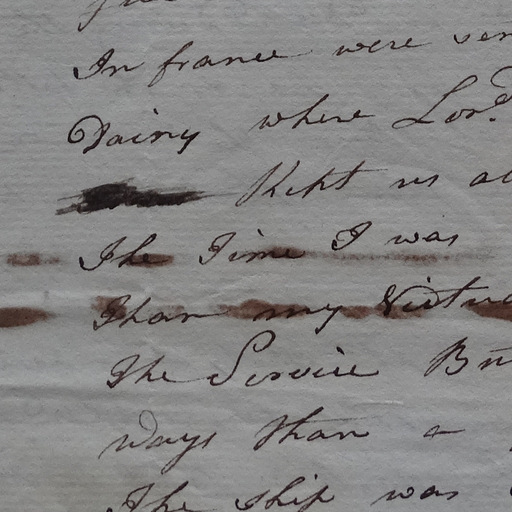 In france were
Dairy where Lord
Kept us
The Time I was
Than my
The Service
Ways than a
The ship was